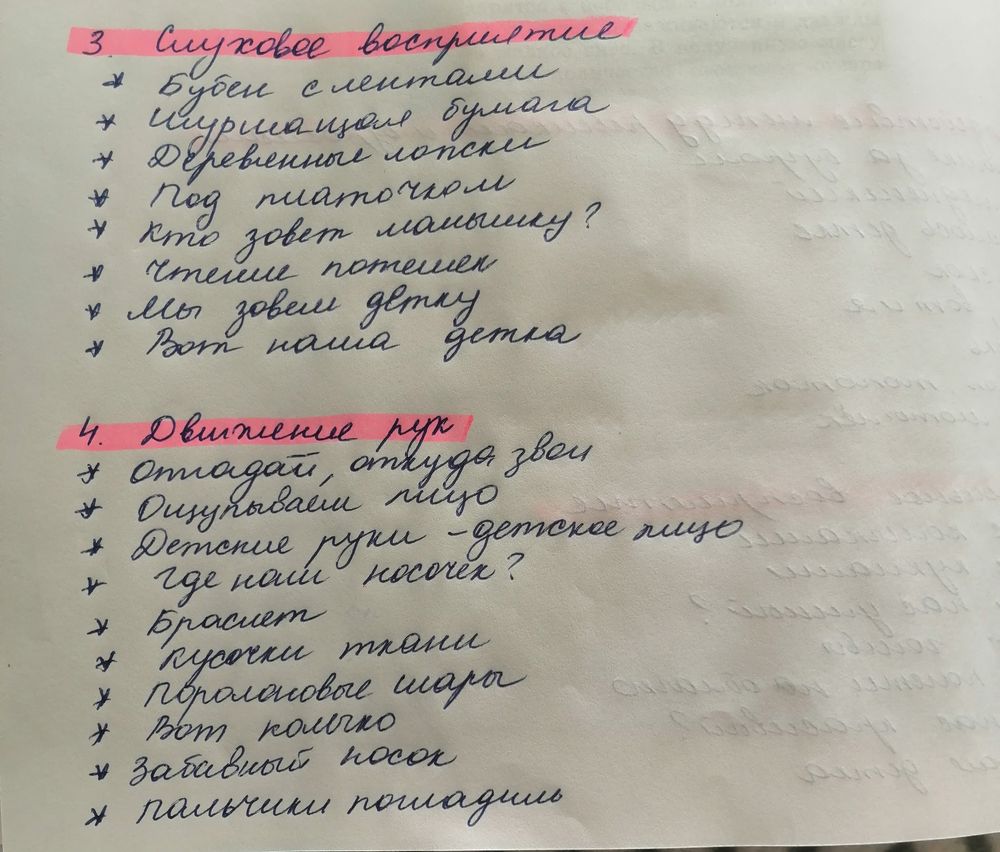 3. Слуховое восприятие
* Бубен с лентами
* Шуршащая бумага
* Деревянные лопски
* Под платочком
* Кто зовет малышку?
* Чтение потешек
* Мы зовем детку
* Вот наша детка
4. Движение рук
* Отгадай, откуда звон
* Ощупываем лицо
* Детские руки - детское лицо
* Где наш носочек?
* Браслет
* Кусочки ткани
* Поролоновые шары
* Вот кольцо
* Забавный носок
* Пальчики погладили